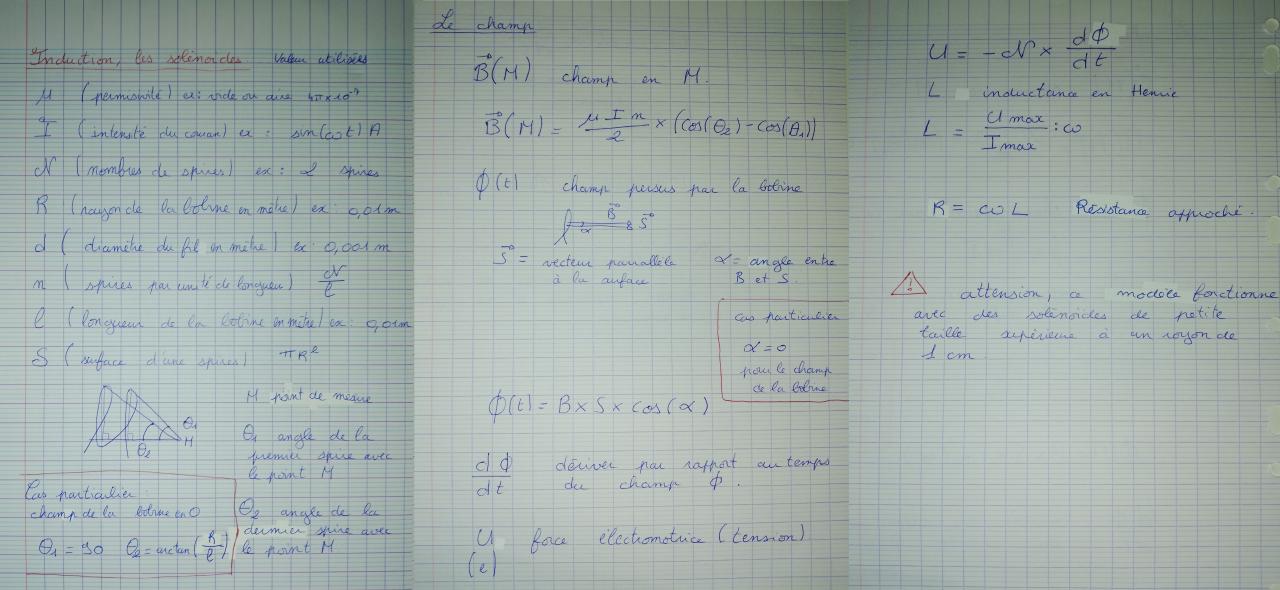 Induction, les solénoides Valeur utilisées
μ (permisivité) ex: vide ou aire 4π×10⁻⁷
I (intensité du couran) ex : sin(ωt) A
N (nombres de spires) ex : 2 spires
R (rayon de la bobine en mètre) ex: 0,01m
d (diamètre du fil en mètre) ex: 0,001 m
n (spires par unité de longueur) N/l
l (longueur de la bobine en mètre) ex: 0,01m
S (surface d'une spires) πR²
M point de mesure
θ₁
M
θ₂
θ₁ angle de la
premier spire avec
le point M
θ₂ angle de la
dernier spire avec
le point M
Cas particulier
champ de la bobine en O
θ₁ = 90 θ₂ = arctan(R/l)
Le champ
B⃗(M) champ en M.
B⃗(M) = μ I n / 2 × (cos(θ₂) - cos(θ₁))
ϕ(t) champ persus par la bobine
B⃗ S⃗
α
S⃗ = vecteur parallèle
à la surface
α = angle entre
B et S.
cas particulier
α = 0
pour le champ
de la bobine
ϕ(t) = B × S × cos(α)
dϕ/dt dériver par rapport au temps
du champ ϕ.
U force électromotrice (tension)
(e)
U = -N × dϕ/dt
L inductance en Henrie
L = U max / I max : ω
R = ωL Résistance approché.
! attension, ce modèle fonctionne
avec des solénoides de petite
taille supérieure à un rayon de
1 cm